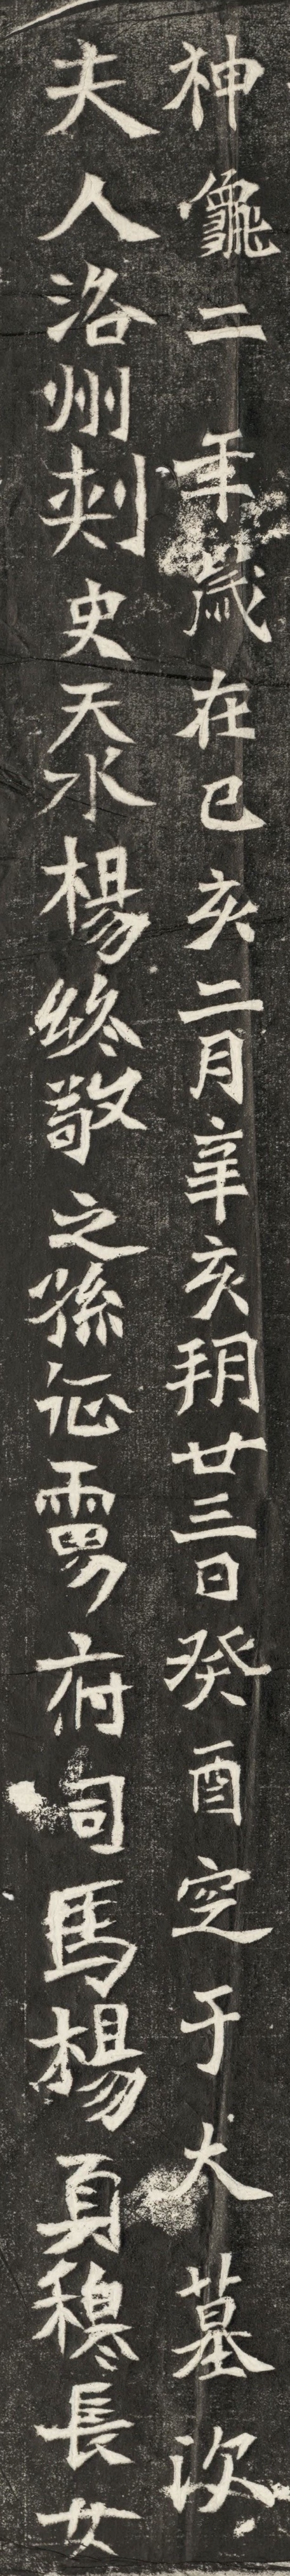 神龜二年歲在己亥二月辛亥朔廿三日癸酉窆于大墓次
夫人洛州刺史天水楊終敬之孫征虜府司馬楊穆長女